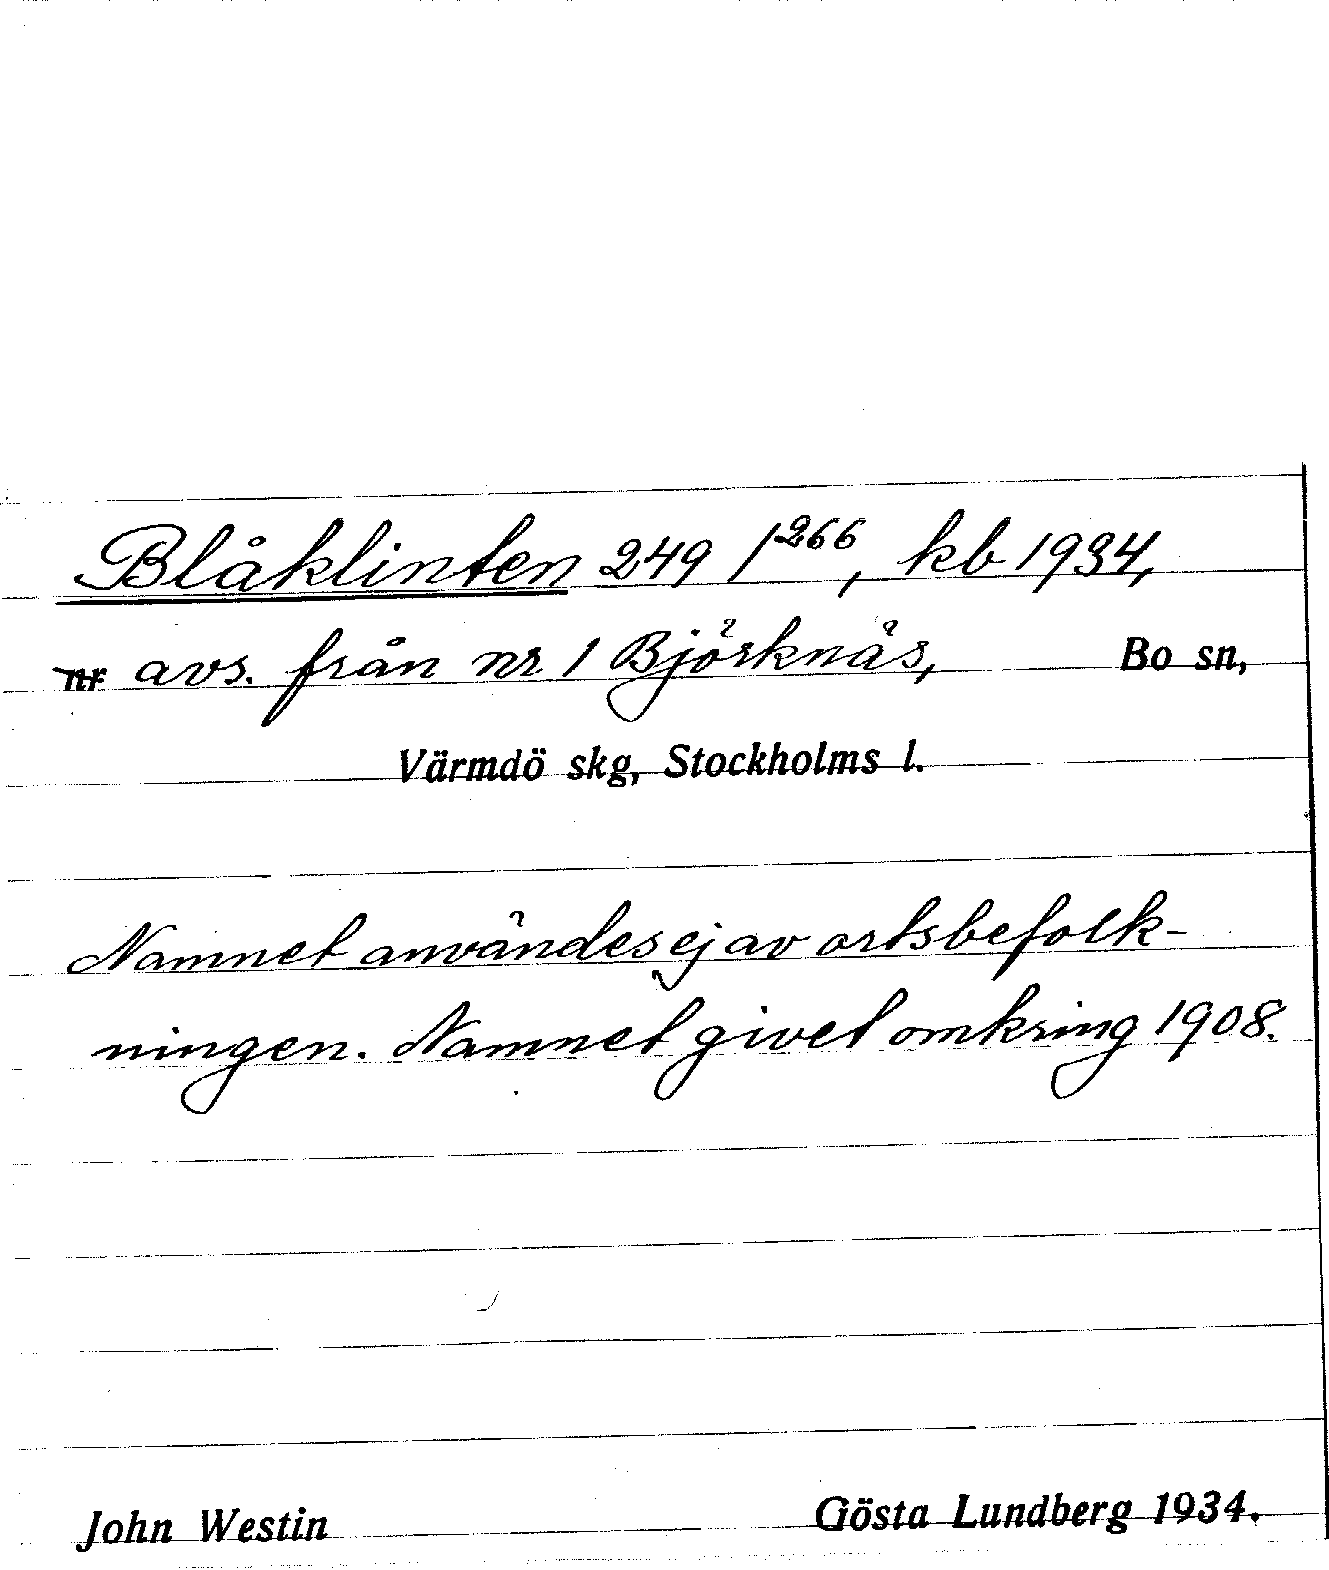 Blåklinten 249 /266, kb 1934,
nr avs. från nr 1 Björknäs, Bo sn,
Värmdö skg, Stockholms l.
Namnet användes ej av ortsbefolk-
ningen. Namnet givet omkring 1908.
John Westin Gösta Lundberg 1934.